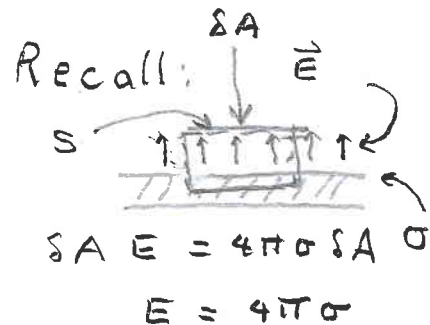 δA
Recall: E⃗
S
δA E = 4πσ δA σ
E = 4πσ